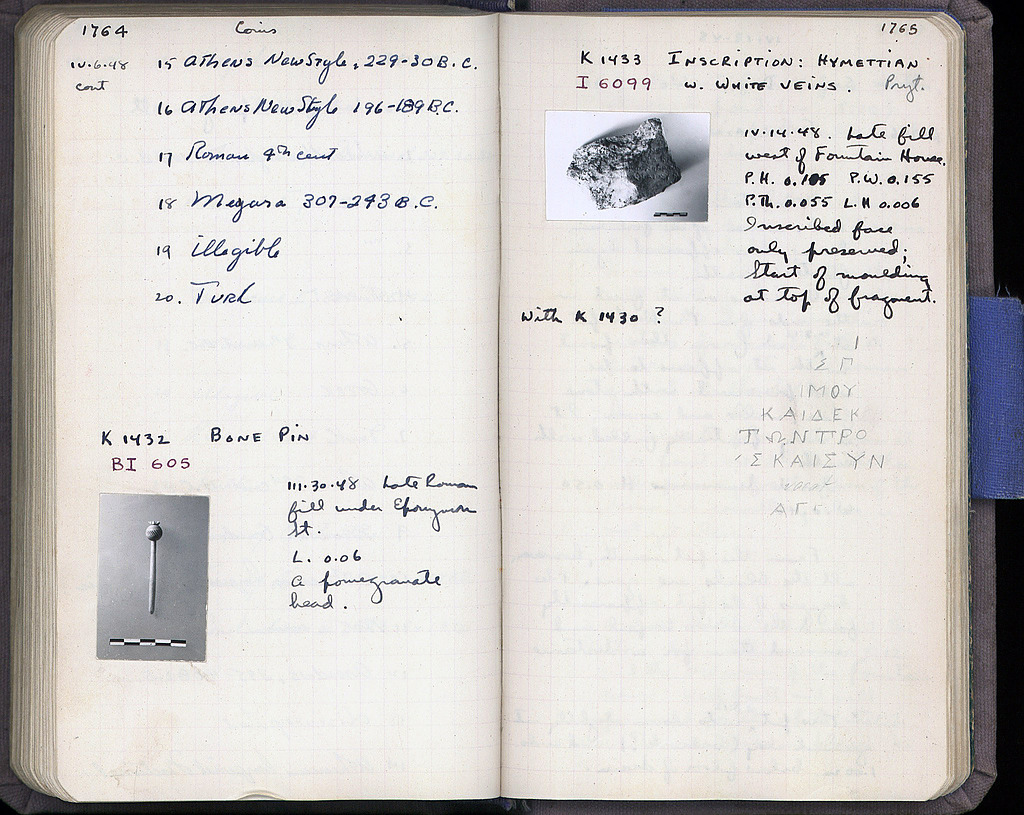 1764
Coins
IV.6.48
cont
15 Athens New Style, 229-30 B.C.
16 Athens New Style 196-189 B.C.
17 Roman 4th cent
18 Megara 307-243 B.C.
19 illegible
20. Turk
K 1432 BONE PIN
BI 605
III.30.48 Late Roman
fill under
St.
L. 0.06
A pomegranate
head.
1765
K 1433 INSCRIPTION: HYMETTIAN
I 6099 W. WHITE VEINS. Pryt.
IV.14.48. Late fill
west of Fountain House.
P.H. P.W. 0.155
P.Th. 0.055 L.H 0.006
Inscribed face
only preserved;
Start of moulding
at top of fragment.
With K 1430 ?
Ι
Σ Γ
ΙΜΟΥ
ΚΑΙΔΕΚ
ΤΩΝΠΡΟ
ΣΚΑΙΣΥΝ
vacat